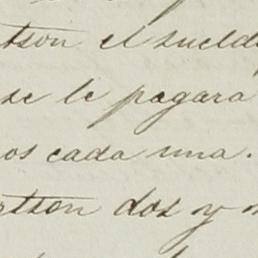 tson el sueldo
se le pagara
os cada una.
rtson dos y